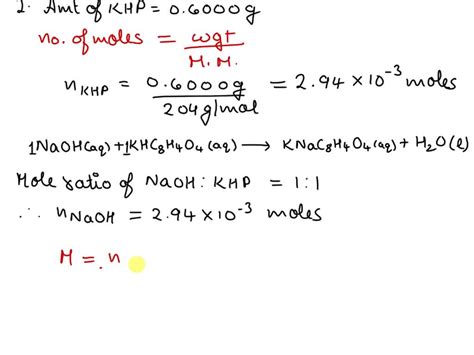 2. Amt of KHP = 0.6000g
no. of moles = wgt / M.M.
nKHP = 0.6000g / 204g/mol = 2.94 × 10⁻³ moles
1NaOH(aq) + 1KHC₈H₄O₄(aq) → KNaC₈H₄O₄(aq) + H₂O(l)
Mole ratio of NaOH : KHP = 1:1
∴ nNaOH = 2.94 × 10⁻³ moles
M = n